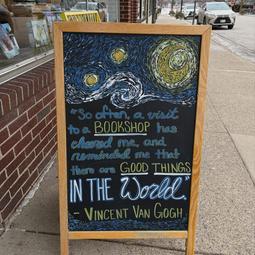 "So often, a visit
to a BOOKSHOP has
cheered me, and
reminded me that
there are GOOD THINGS
IN THE World."
- VINCENT VAN GOGH